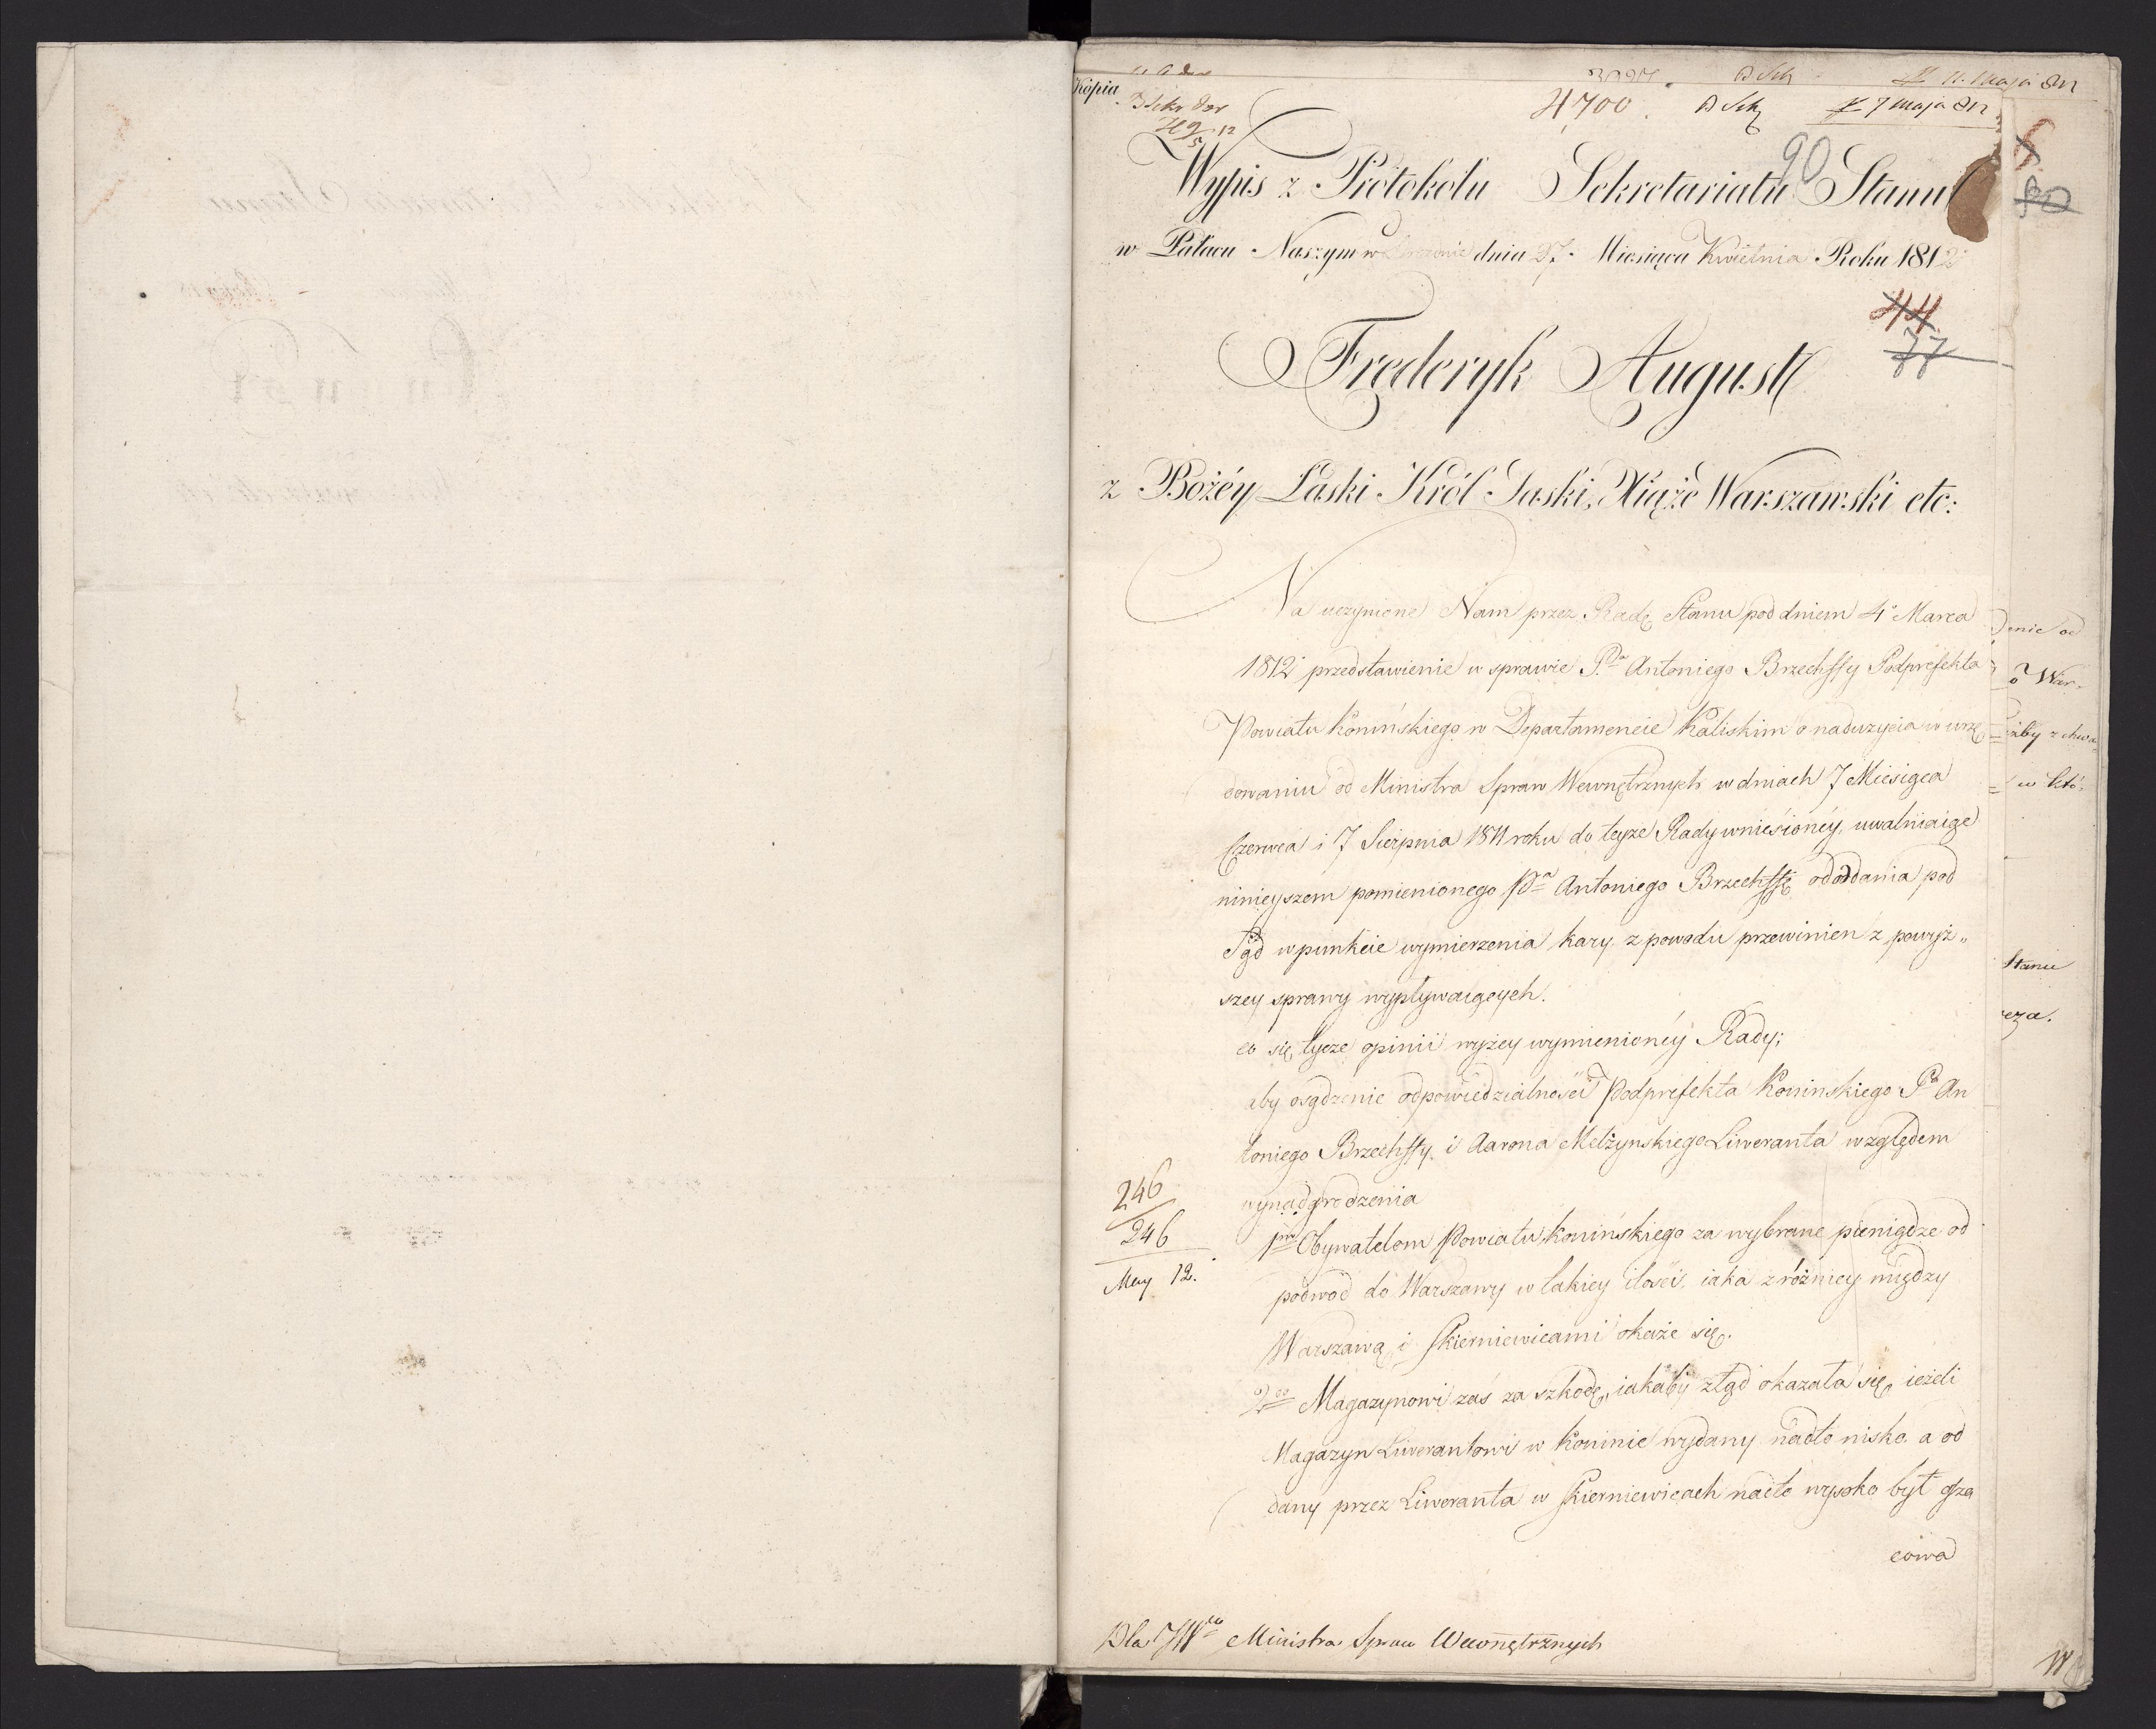 Kopia
4700. 7 maja 812
90
Wypis z Protokołu Sekretariatu Stanu
w Pałacu Naszym w dnia 27. Miesiąca Kwietnia Roku 1812
44
77
Frederyk August
z Bożéy Łaski Król Saski, Xiążę Warszawski etc:
Na uczynione Nam przez Radę Stanu pod dniem 4º Marca
1812 przedstawienie w sprawie P.ª Antoniego Brzechffy Podprefekta
Powiatu Konińskiego w Departamencie Kaliskim o nadużycia w urzę
dowaniu od Ministra Spraw Wewnętrznych w dniach 7 Miesiąca
Czerwca i 7 Sierpnia 1811 roku do teyże Rady wniesionéy, uwalniaiąc
ninieyszem pomienionego Pª Antoniego Brzechffę od oddania pod
Sąd w punkcie wymierzenia kary z powodu przewinien z powyż„
szey sprawy wypływaiących.
co się tycze opinii wyżey wymienionéy Rady;
aby osądzenie odpowiedzialności Podprefekta Koninskiego Pª An
toniego Brzechffy i Aarona Mełżynskiego Liweranta względem
wynadgrodzenia
1mo Obywatelom Powiatu Konińskiego za wybrane pieniądze od
podwod do Warszawy w takiey ilości, iaka z różnicy między
Warszawą i Skierniewicami okaże się.
2do Magazynowi zaś za szkodę, iakaby ztąd okazała się, ieżeli
Magazyn Liwerantowi w Koninie wydany nadto nisko a od
dany przez Liweranta w Skierniewicach nadto wysoko był osza
cowa
246
246
May 12.
Dla JWgo Ministra Spraw Wewnętrznych
80
denie od
o War-
iżby z chwa
w któ-
Stanu
cza.